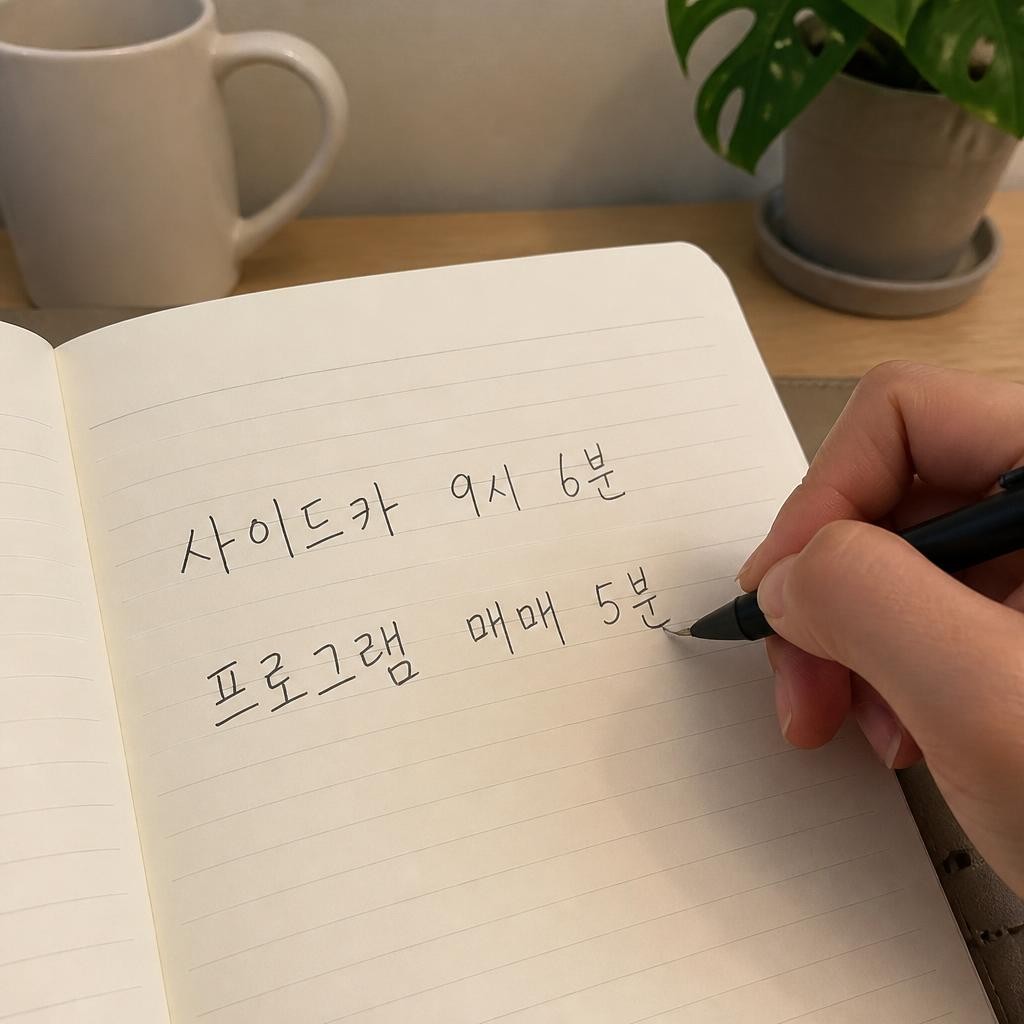 사이드카 9시 6분
프로그램 매매 5분